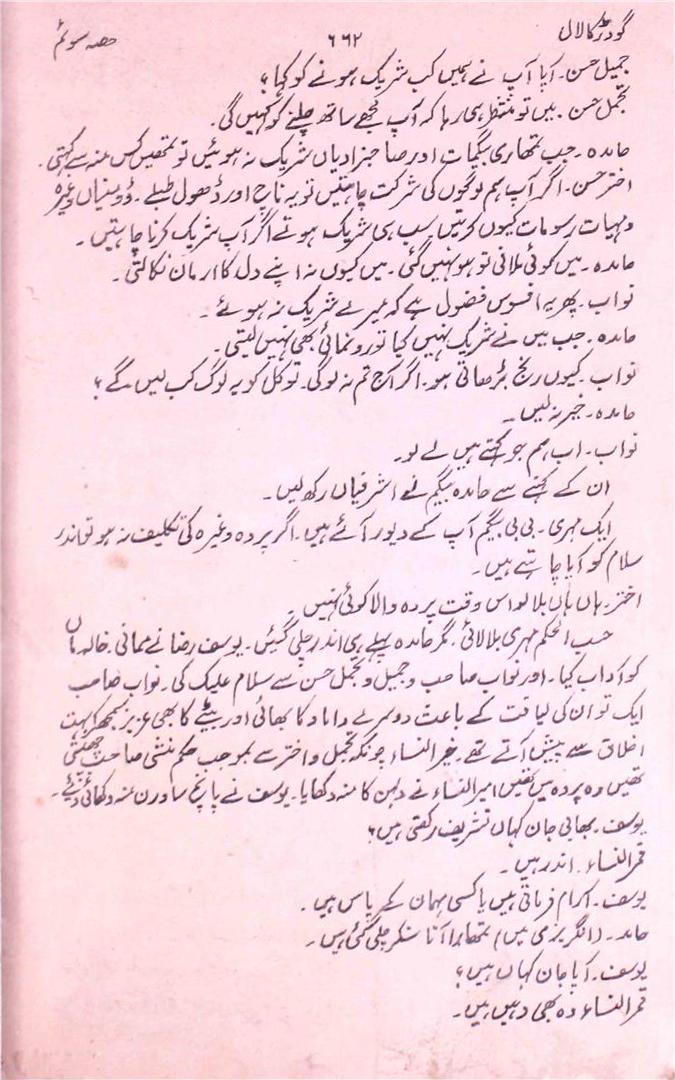 گودڑ کا لال ۶۶۲ حصہ سوئم
جمیل حسن۔ آپا آپ نے ہمیں کب شریک ہونے کو کہا؟
تجمل حسن۔ میں تو منتظر ہی رہا کہ آپ مجھے ساتھ چلنے کو کہیں گی۔
حامدہ۔ جب تمھاری بیگمات اور صاحبزادیاں شریک نہ ہوئیں تو تمھیں کس منہ سے کہتی۔
اختر حسن۔ اگر آپ ہم لوگوں کی شرکت چاہتیں تو یہ ناچ اور ڈھول طبلے۔ ڈومنیاں وغیرہ
واہیات رسومات کیوں کرتیں سب ہی شریک ہوتے اگر آپ شریک کرنا چاہتیں۔
حامدہ۔ میں کوئی ملانی تو ہو نہیں گئی۔ میں کیوں نہ اپنے دل کا ارمان نکالتی۔
نواب۔ پھر یہ افسوس فضول ہے کہ میرے شریک نہ ہوئے۔
حامدہ۔ جب میں نے شریک نہیں کیا تو رونمائی بھی نہیں لیتی۔
نواب۔ کیوں رنج بڑھاتی ہو۔ اگر آج تم نہ لو گی۔ تو کل کو یہ لوگ کب لیں گے؟
حامدہ۔ خیر نہ لیں۔
نواب۔ اب ہم جو کہتے ہیں لے لو۔
ان کے کہنے سے حامدہ بیگم نے اشرفیاں رکھ لیں۔
ایک مہری۔ بی بی بیگم آپ کے دیور آئے ہیں۔ اگر پردہ وغیرہ کی تکلیف نہ ہو تو اندر
سلام کو آیا چاہتے ہیں۔
اختر۔ ہاں ہاں بلا لو اس وقت پردہ والا کوئی نہیں۔
حسب الحکم مہری بلا لائی۔ مگر حامدہ پہلے ہی اندر چلی گئیں۔ یوسف رضا نے ممانی۔ خالہ ماں
کو آداب کیا۔ اور نواب صاحب و جمیل و تجمل حسن سے سلام علیک کی۔ نواب صاحب
ایک تو ان کی لیاقت کے باعث دوسرے داماد کا بھائی اور بیٹے کا بھی عزیز سمجھ کر بہت
اخلاق سے پیش آتے تھے۔ خیر النساء چونکہ تجمل و اختر سے بموجب حکم منشی صاحب چھپتی
تھیں وہ پردہ میں تھیں امیر النساء نے دلہن کا منہ دکھایا۔ یوسف نے پانچ ساورن منہ دکھائی دیئے۔
یوسف۔ بھابی جان کہاں تشریف رکھتی ہیں؟
قمر النساء۔ اندر ہیں۔
یوسف۔ آرام فرماتی ہیں یا کسی مہمان کے پاس ہیں۔
حامد۔ (انگریزی میں) تمھارا آنا سنکر چلی گئی ہیں۔
یوسف۔ آپا جان کہاں ہیں؟
قمر النساء وہ بھی وہیں ہیں۔